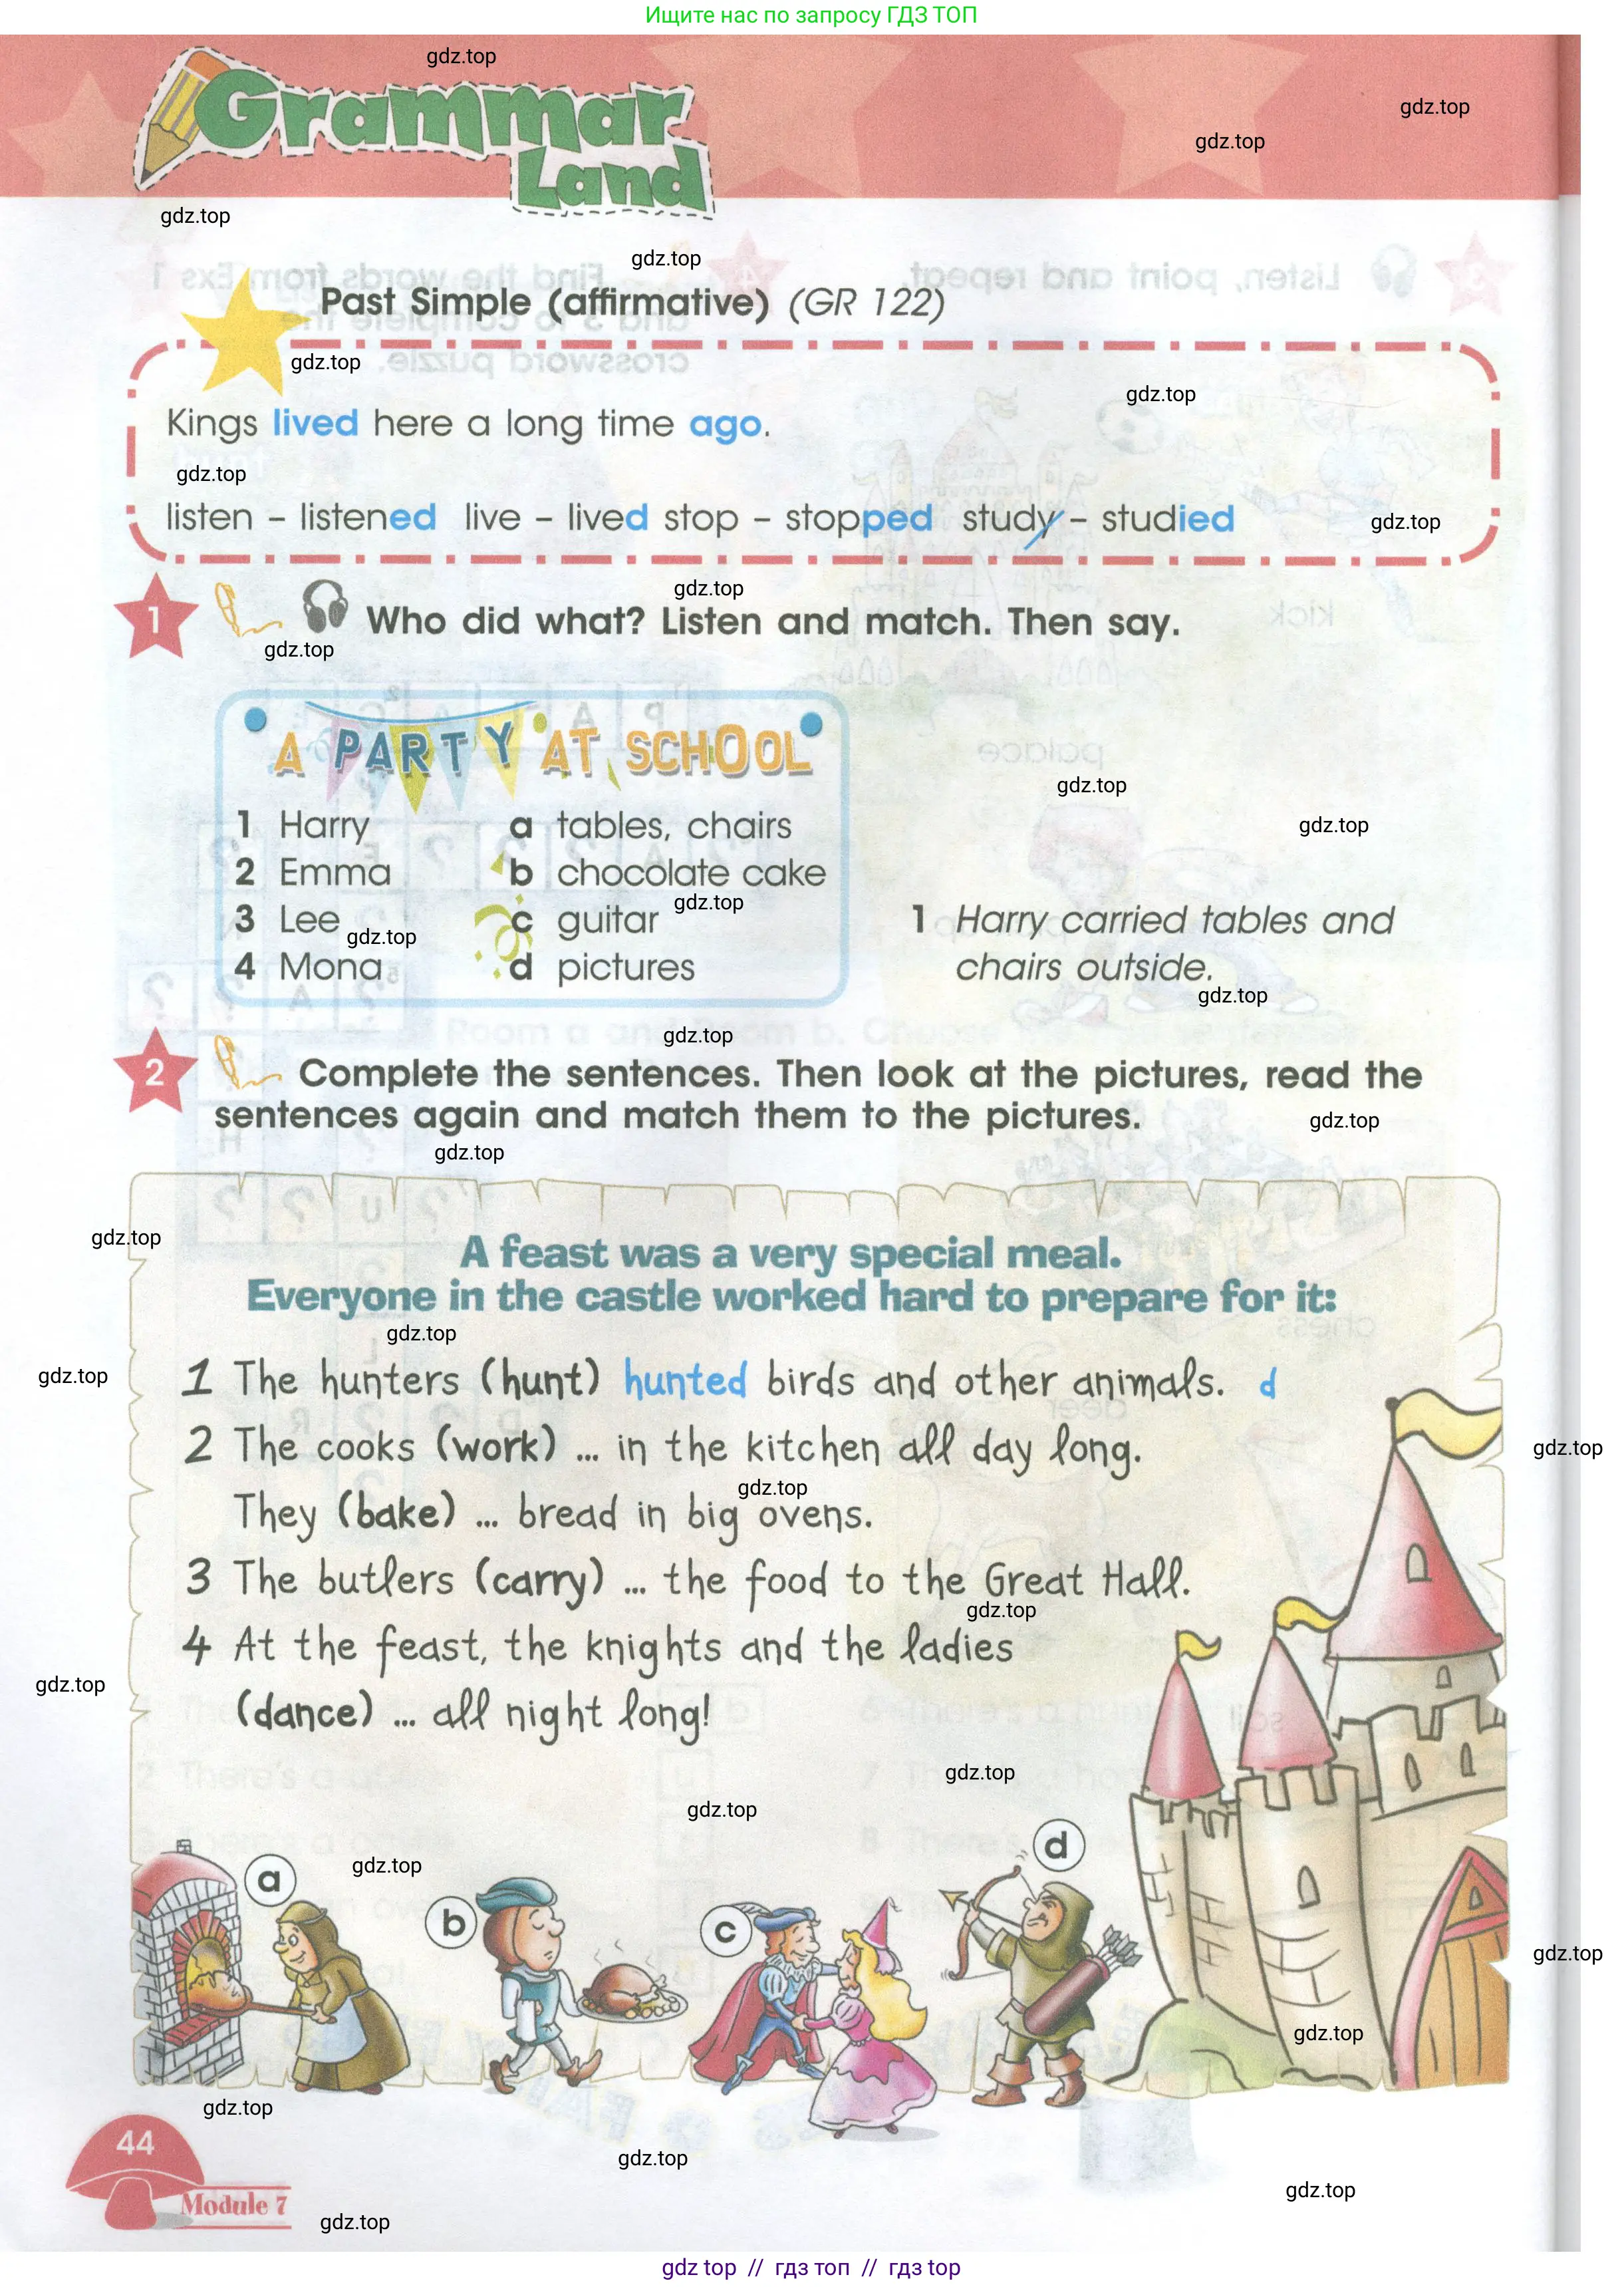 Ищите нас по запросу ГДЗ ТОП
gdz.top
gdz.top
gdz.top
Grammar
Land
gdz.top
gdz.top
Past Simple (affirmative) (GR 122)
gdz.top
gdz.top
Kings lived here a long time ago.
gdz.top
listen – listened live – lived stop – stopped study – studied
gdz.top
gdz.top
1 Who did what? Listen and match. Then say.
gdz.top
A PARTY AT SCHOOL
gdz.top
1 Harry a tables, chairs
gdz.top
2 Emma b chocolate cake
gdz.top
3 Lee c guitar
1 Harry carried tables and
gdz.top
4 Mona d pictures
chairs outside.
gdz.top
gdz.top
2 Complete the sentences. Then look at the pictures, read the
sentences again and match them to the pictures.
gdz.top
gdz.top
gdz.top
A feast was a very special meal.
Everyone in the castle worked hard to prepare for it:
gdz.top
gdz.top
1 The hunters (hunt) hunted birds and other animals. d
2 The cooks (work) ... in the kitchen all day long.
gdz.top
gdz.top
They (bake) ... bread in big ovens.
3 The butlers (carry) ... the food to the Great Hall.
gdz.top
4 At the feast, the knights and the ladies
gdz.top
(dance) ... all night long!
gdz.top
gdz.top
d
gdz.top
a
b
c
gdz.top
gdz.top
gdz.top
44
gdz.top
gdz.top
Module 7
gdz.top
gdz top // гдз топ // gdz top